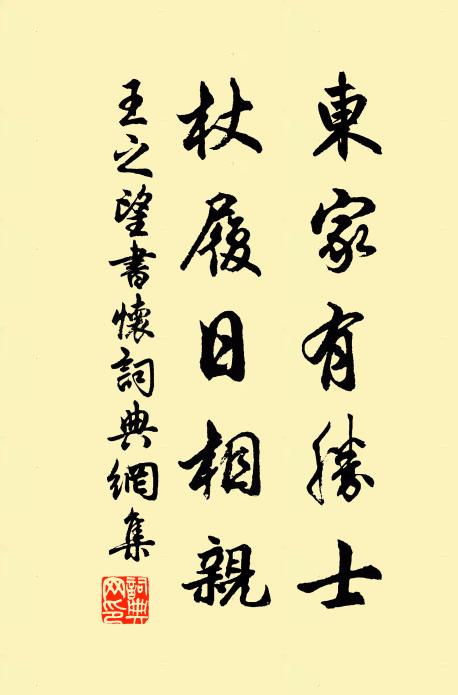 東家有勝士
杖履日相親
王之望書懷詞典網集
詞典網印